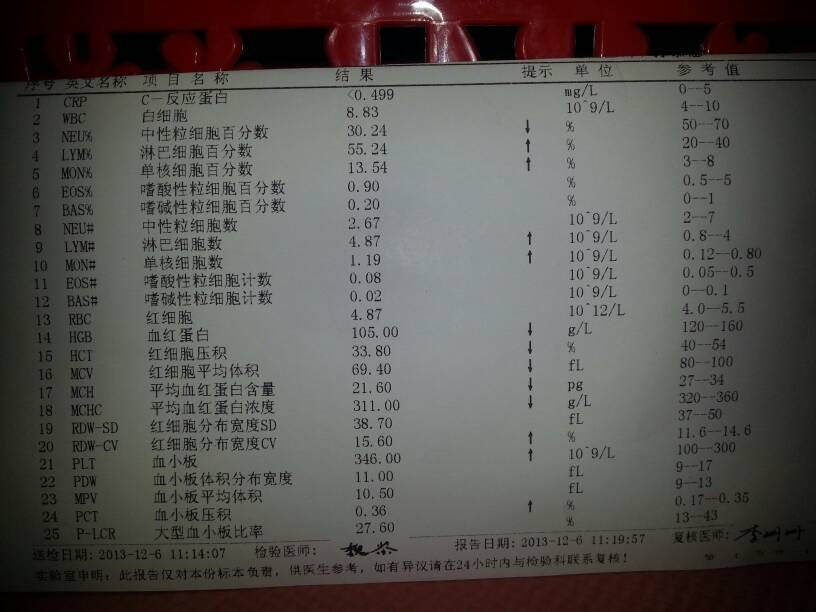 序号 英文名称 项目名称 结果 提示 单位 参考值
1 CRP C—反应蛋白 <0.499 mg/L 0--5
2 WBC 白细胞 8.83 10^9/L 4--10
3 NEU% 中性粒细胞百分数 30.24 ↓ % 50--70
4 LYM% 淋巴细胞百分数 55.24 ↑ % 20--40
5 MON% 单核细胞百分数 13.54 ↑ % 3--8
6 EOS% 嗜酸性粒细胞百分数 0.90 % 0.5--5
7 BAS% 嗜碱性粒细胞百分数 0.20 % 0--1
8 NEU# 中性粒细胞数 2.67 10^9/L 2--7
9 LYM# 淋巴细胞数 4.87 ↑ 10^9/L 0.8--4
10 MON# 单核细胞数 1.19 ↑ 10^9/L 0.12--0.80
11 EOS# 嗜酸性粒细胞计数 0.08 10^9/L 0.05--0.5
12 BAS# 嗜碱性粒细胞计数 0.02 10^9/L 0--0.1
13 RBC 红细胞 4.87 10^12/L 4.0--5.5
14 HGB 血红蛋白 105.00 ↓ g/L 120--160
15 HCT 红细胞压积 33.80 ↓ % 40--54
16 MCV 红细胞平均体积 69.40 ↓ fL 80--100
17 MCH 平均血红蛋白含量 21.60 ↓ pg 27--34
18 MCHC 平均血红蛋白浓度 311.00 ↓ g/L 320--360
19 RDW-SD 红细胞分布宽度SD 38.70 fL 37--50
20 RDW-CV 红细胞分布宽度CV 15.60 ↑ % 11.6--14.6
21 PLT 血小板 346.00 ↑ 10^9/L 100--300
22 PDW 血小板体积分布宽度 11.00 fL 9--17
23 MPV 血小板平均体积 10.50 fL 9--13
24 PCT 血小板压积 0.36 ↑ % 0.17--0.35
25 P-LCR 大型血小板比率 27.60 % 13--43
送检日期: 2013-12-6 11:14:07 检验医师: 报告日期: 2013-12-6 11:19:57 复核医师:
实验室申明: 此报告仅对本份标本负责, 供医生参考, 如有异议请在24小时内与检验科联系复核!